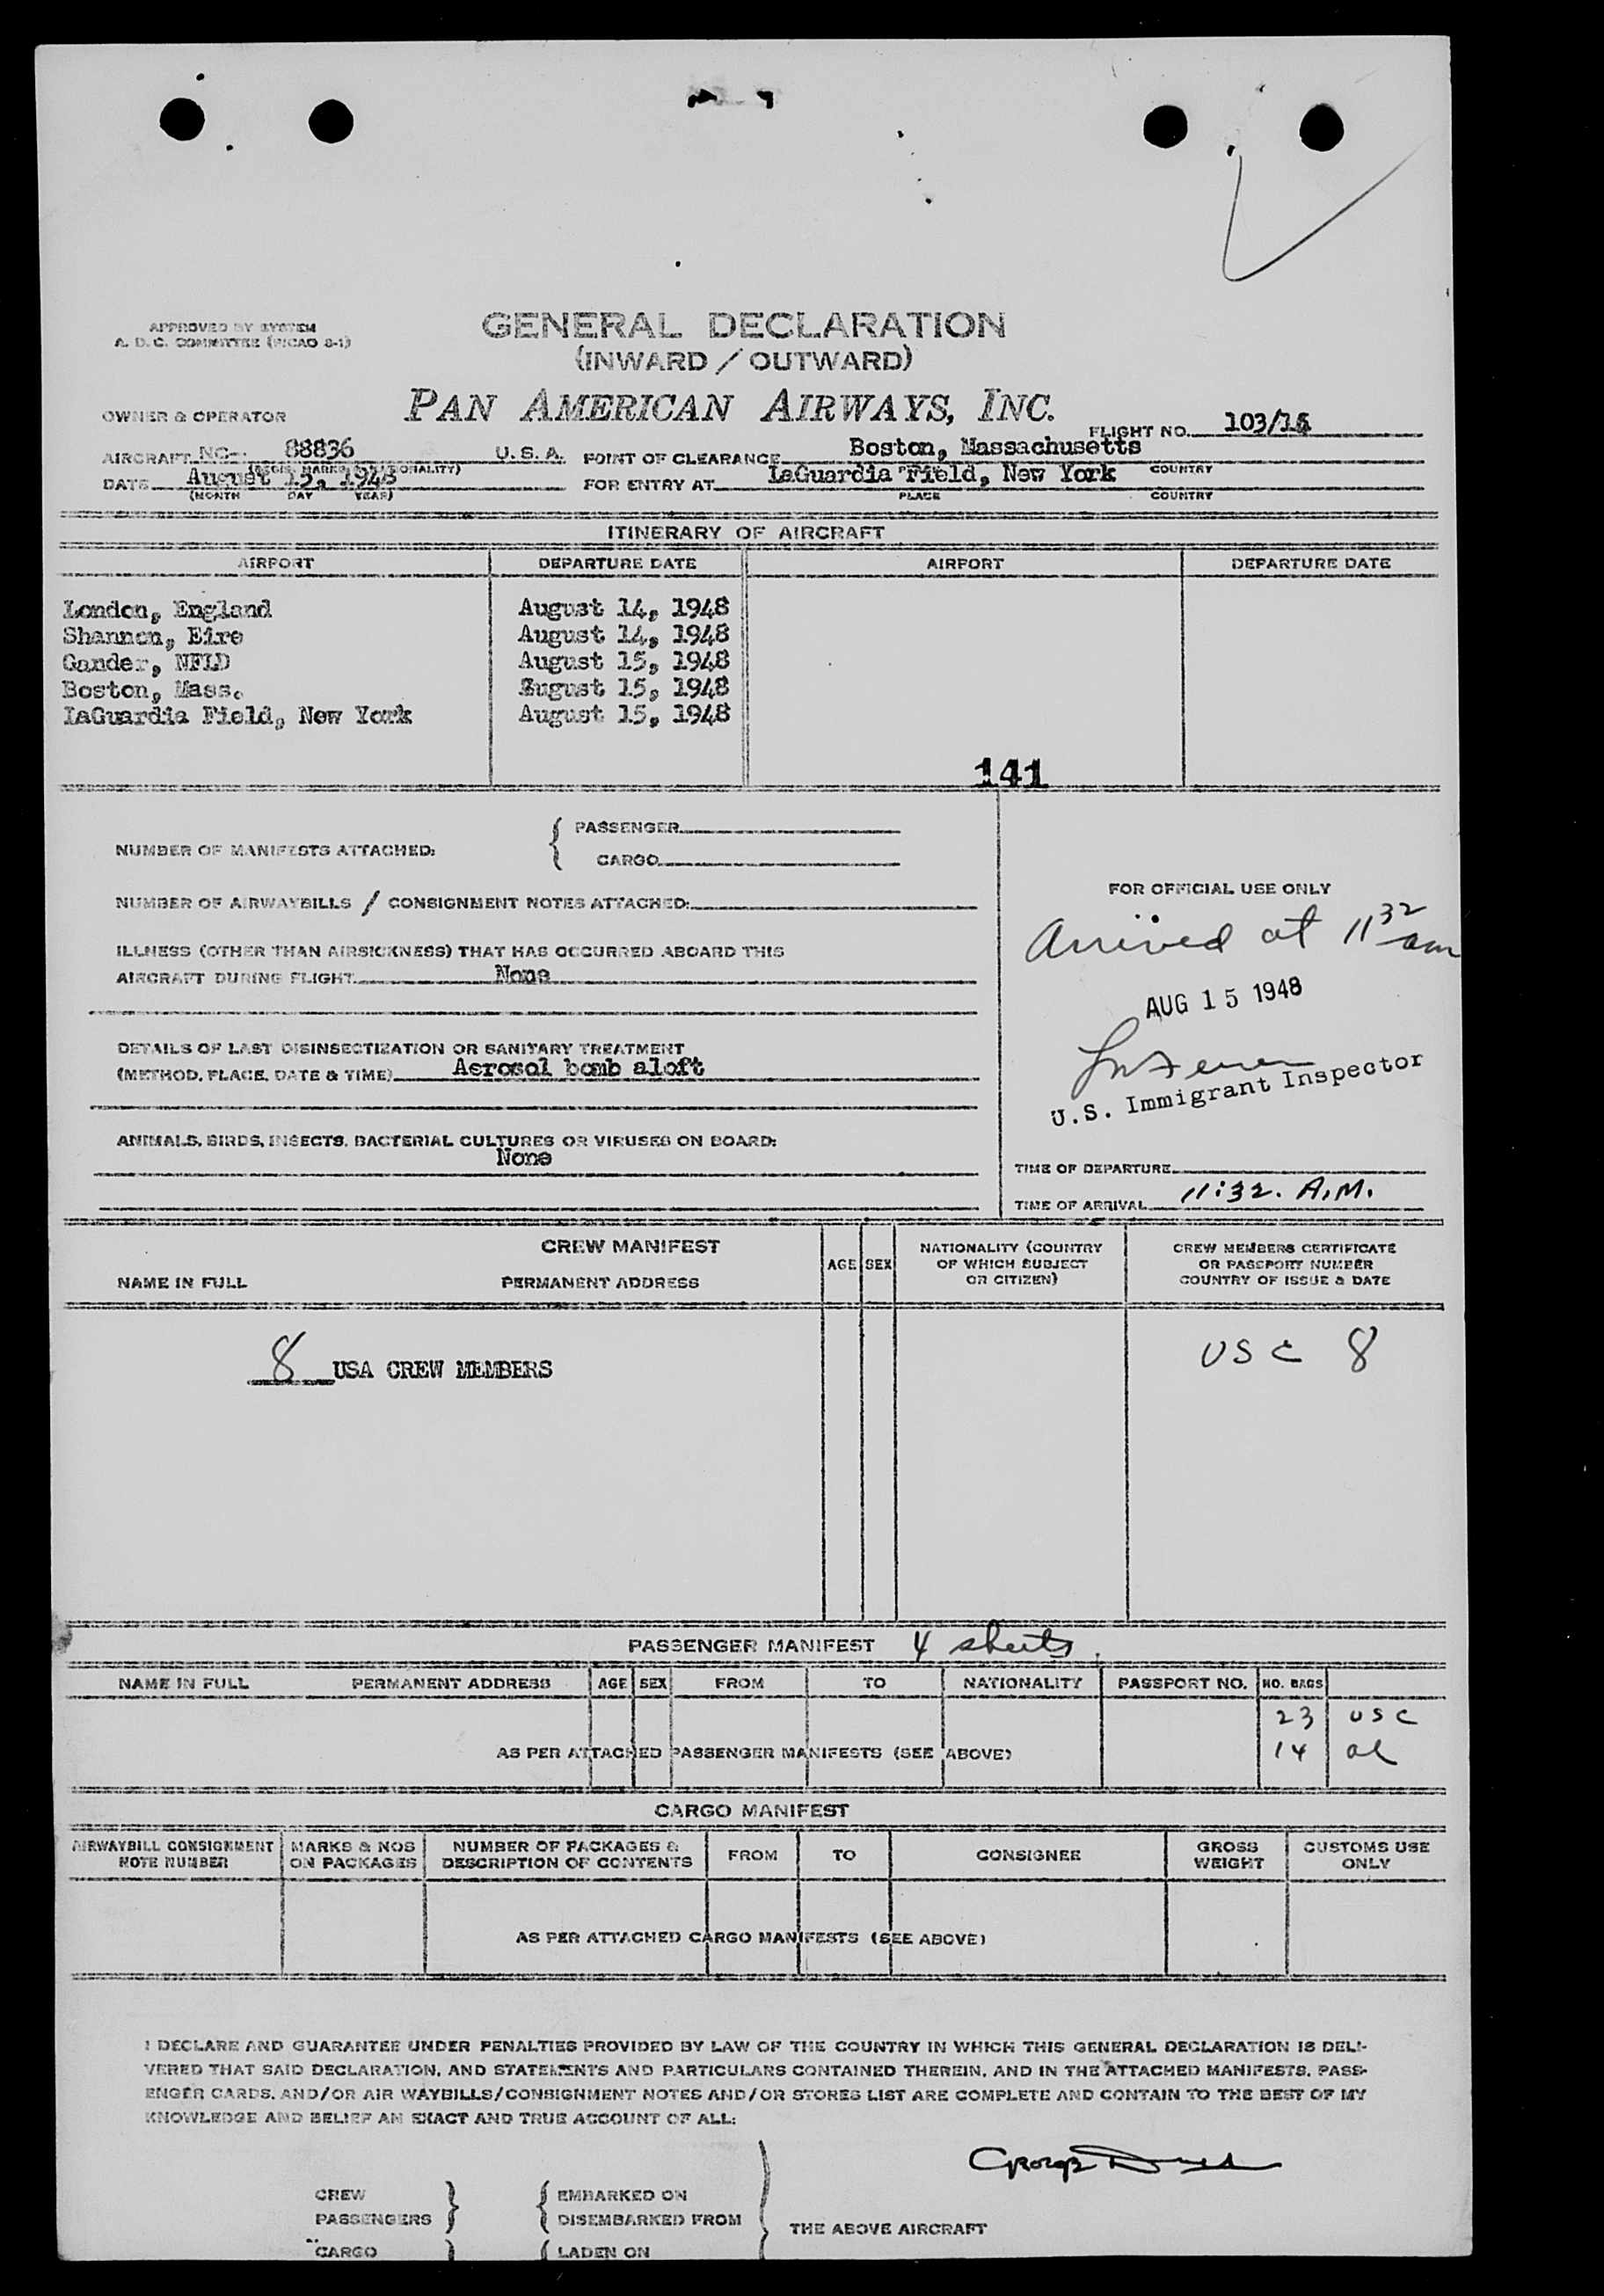 APPROVED BY SYSTEM
A. D. C. COMMITTEE (PICAO 8-1)
GENERAL DECLARATION
(INWARD / OUTWARD)
OWNER & OPERATOR PAN AMERICAN AIRWAYS, INC.
FLIGHT NO. 103/14
AIRCRAFT NC-: 88836 U. S. A. POINT OF CLEARANCE Boston, Massachusetts
(REGIS. MARKS & NATIONALITY) PLACE COUNTRY
DATE August 15, 1948 FOR ENTRY AT LaGuardia Field, New York
(MONTH DAY YEAR) PLACE COUNTRY
ITINERARY OF AIRCRAFT
AIRPORT DEPARTURE DATE AIRPORT DEPARTURE DATE
London, England August 14, 1948
Shannon, Eire August 14, 1948
Gander, NFLD August 15, 1948
Boston, Mass. August 15, 1948
LaGuardia Field, New York August 15, 1948
141
NUMBER OF MANIFESTS ATTACHED: { PASSENGER
CARGO
NUMBER OF AIRWAYBILLS / CONSIGNMENT NOTES ATTACHED:
ILLNESS (OTHER THAN AIRSICKNESS) THAT HAS OCCURRED ABOARD THIS
AIRCRAFT DURING FLIGHT None
DETAILS OF LAST DISINSECTIZATION OR SANITARY TREATMENT
(METHOD, PLACE, DATE & TIME) Aerosol bomb aloft
ANIMALS, BIRDS, INSECTS, BACTERIAL CULTURES OR VIRUSES ON BOARD:
None
FOR OFFICIAL USE ONLY
Arrived at 11 32 am
AUG 15 1948
U.S. Immigrant Inspector
TIME OF DEPARTURE
TIME OF ARRIVAL 11:32. A.M.
CREW MANIFEST
NAME IN FULL PERMANENT ADDRESS AGE SEX NATIONALITY (COUNTRY OF WHICH SUBJECT OR CITIZEN) CREW MEMBERS CERTIFICATE OR PASSPORT NUMBER COUNTRY OF ISSUE & DATE
8 USA CREW MEMBERS USC 8
PASSENGER MANIFEST 4 sheets
NAME IN FULL PERMANENT ADDRESS AGE SEX FROM TO NATIONALITY PASSPORT NO. NO. BAGS
23 USC
AS PER ATTACHED PASSENGER MANIFESTS (SEE ABOVE) 14 al
CARGO MANIFEST
AIRWAYBILL CONSIGNMENT NOTE NUMBER MARKS & NOS ON PACKAGES NUMBER OF PACKAGES & DESCRIPTION OF CONTENTS FROM TO CONSIGNEE GROSS WEIGHT CUSTOMS USE ONLY
AS PER ATTACHED CARGO MANIFESTS (SEE ABOVE)
I DECLARE AND GUARANTEE UNDER PENALTIES PROVIDED BY LAW OF THE COUNTRY IN WHICH THIS GENERAL DECLARATION IS DELI-
VERED THAT SAID DECLARATION, AND STATEMENTS AND PARTICULARS CONTAINED THEREIN, AND IN THE ATTACHED MANIFESTS, PASS-
ENGER CARDS, AND/OR AIR WAYBILLS/CONSIGNMENT NOTES AND/OR STORES LIST ARE COMPLETE AND CONTAIN TO THE BEST OF MY
KNOWLEDGE AND BELIEF AN EXACT AND TRUE ACCOUNT OF ALL:
George
CREW } { EMBARKED ON
PASSENGERS DISEMBARKED FROM THE ABOVE AIRCRAFT
CARGO } { LADEN ON